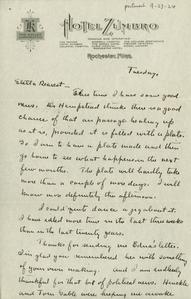 postmark 9-23-24
HOTEL ZUMBRO
Rochester, Minn.
Tuesday.
Dearest —
This time I have some good
news. Dr. Hempstead thinks there is a good
chance of that air passage healing up
as it is, provided it is fitted with a plate.
So I am to have a plate made and then
go home to see what happens in the next
few months. The plate will hardly take
more than a couple of more days. I will
know more definitely this afternoon.
I could dance a jig about it.
I have ached more time in the last three weeks
than in the last twenty years.
Thanks for sending me Edna's letter.
I'm glad you remembered her with something
of your own making. And I am endlessly
thankful for that box of
and Tom Sable were keeping me awake